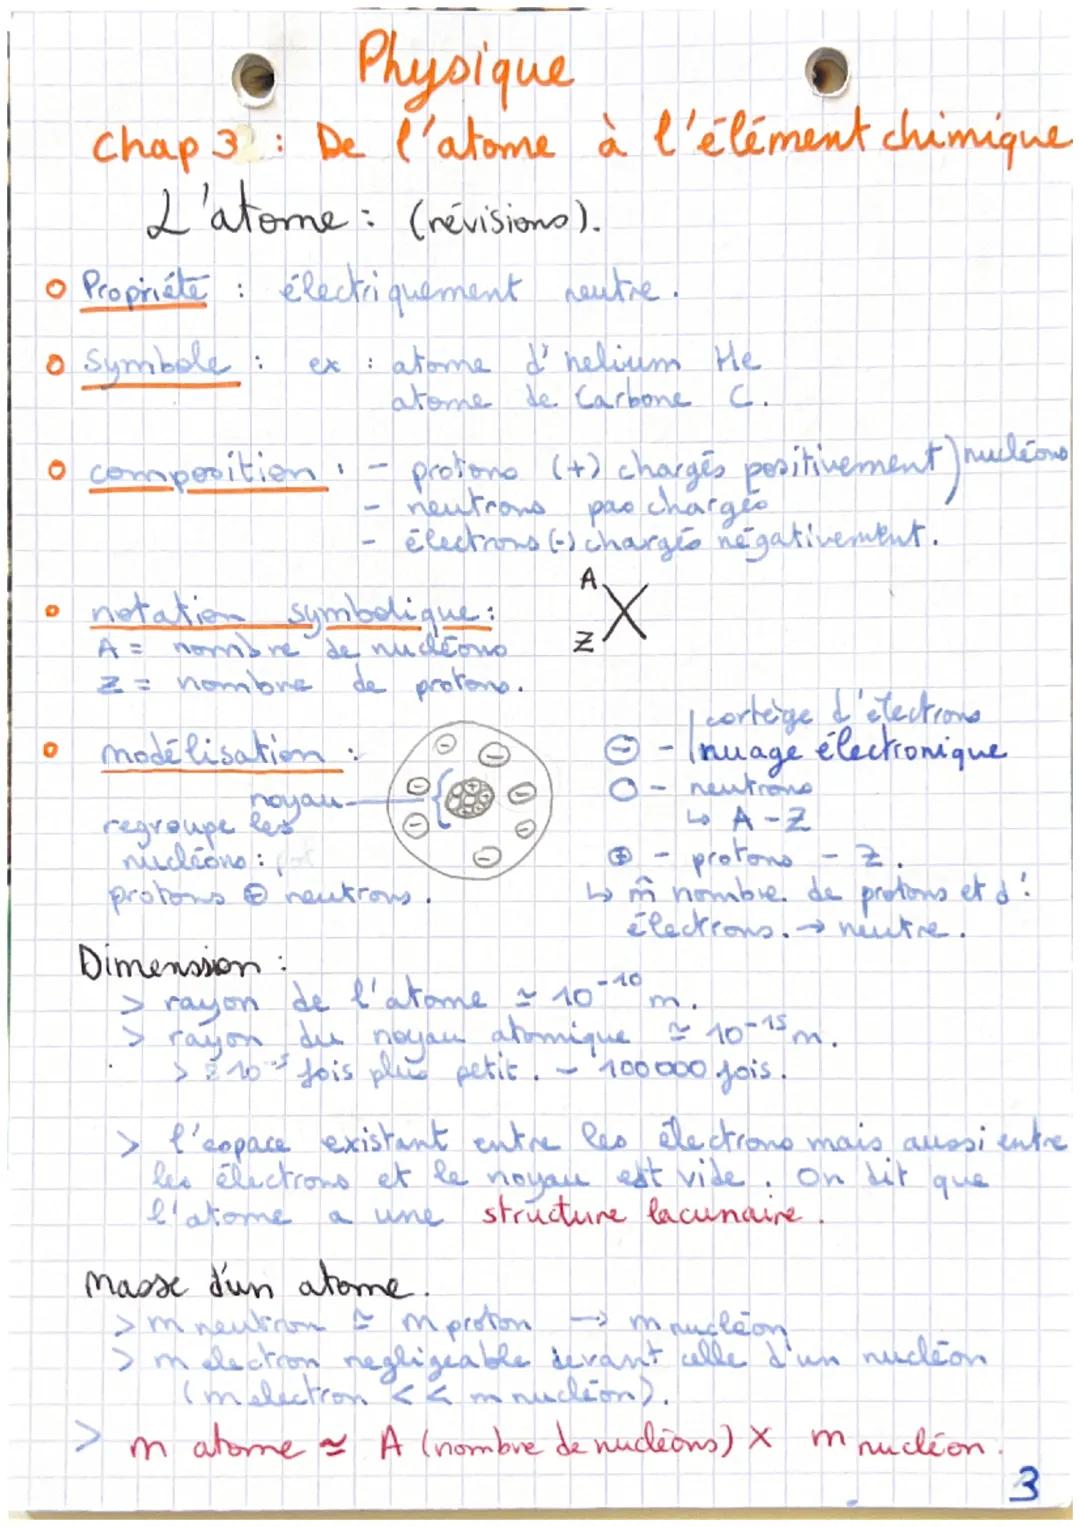 Physique
Chap 3 : De l'atome à l'élément chimique
L'atome : (révisions).
Propriété : électriquement neutre.
Symbole : ex : atome d'helium He
atome de Carbone C.
composition : - protons (+) chargés positivement ) nucléons
- neutrons pas chargés
- électrons (-) chargés négativement.
notation symbolique : A Z X
A = nombre de nucléons
Z = nombre de protons.
modélisation :
noyau
regroupe les
nucléons :
protons ⊕ neutrons.
cortège d'électrons
⊖ - nuage électronique
O - neutrons
↳ A - Z
⊕ - protons - Z.
↳ m̂ nombre de protons et d'
électrons. → neutre.
Dimenssion :
> rayon de l'atome ≃ 10⁻¹⁰ m.
> rayon du noyau atomique ≃ 10⁻¹⁵ m.
> 10⁻⁵ fois plus petit. - 100 000 fois.
> l'espace existant entre les électrons mais aussi entre
les électrons et le noyau est vide. On dit que
l'atome a une structure lacunaire.
Masse d'un atome.
> m neutron ≃ m proton → m nucléon
> m electron negligeable devant celle d'un nucléon
(m electron << m nucléon).
> m atome ≃ A (nombre de nucléons) × m nucléon.
3